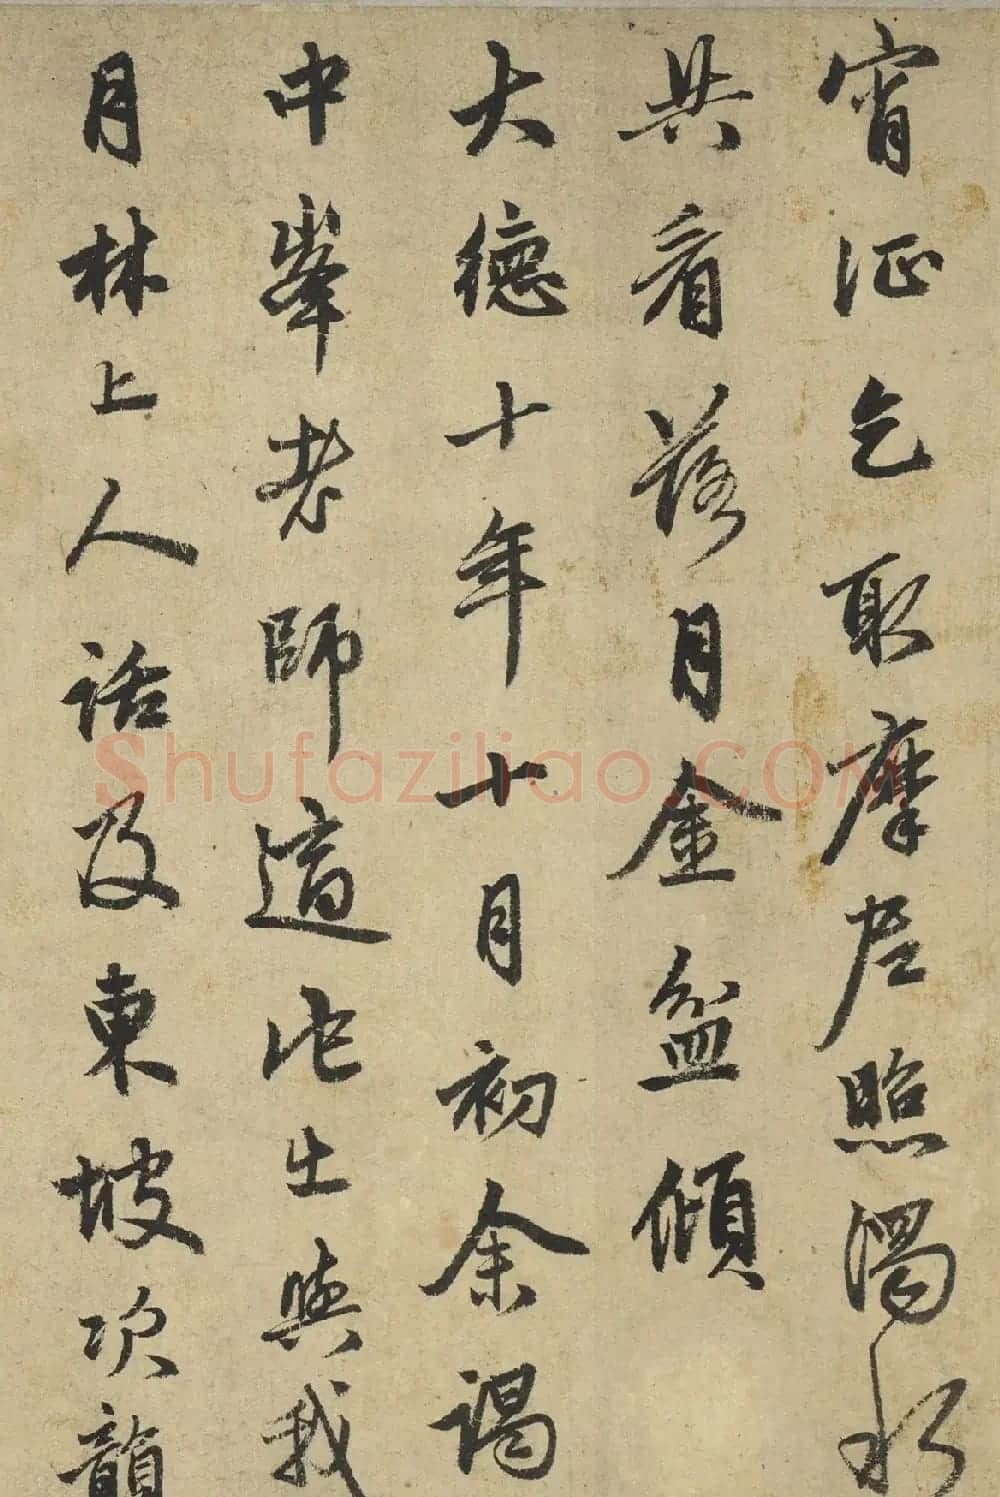 宵征乞取摩尼照濁水
共看落月金盆傾
大德十年十月初余謁
中峯老師道此生與我
月林上人話及東坡次韻
Shufaziliao.COM